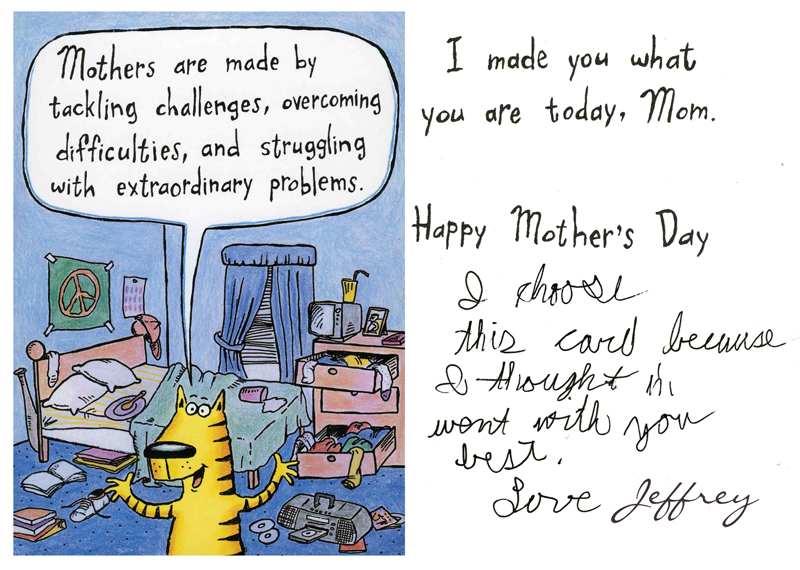 Mothers are made by
tackling challenges, overcoming
difficulties, and struggling
with extraordinary problems.
I made you what
you are today, Mom.
Happy Mother's Day
I choose
this card because
I thought it
went with you
best.
Love Jeffrey